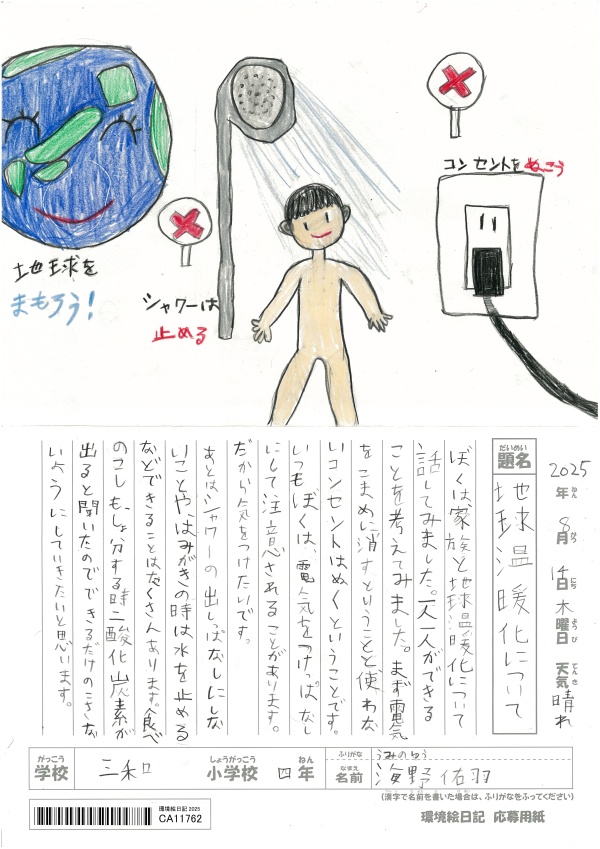 地球を
まもろう!
シャワーは
止める
コンセントをぬこう
2025年 8月 14日 木曜日 天気 晴れ
ねん がつ にち ようび てんき
だいめい
題名
地球温暖化について
ぼくは家族と地球温暖化について
話してみました。一人一人ができる
ことを考えてみました。まず電気
をこまめに消すということと使わな
いコンセントはぬくということです。
いつもぼくは、電気をつけっぱなし
にして注意されることがあります。
だから気をつけたいです。
あとはシャワーの出しっぱなしにしな
いことや、はみがきの時は水を止める
などできることはたくさんあります。食べ
のこしも、しょ分する時二酸化炭素が
出ると聞いたのでできるだけのこさな
いようにしていきたいと思います。
がっこう しょうがっこう ねん
学校 三和 小学校 四年
ふりがな うみの ゆう
なまえ
名前 海野 佑羽
(漢字で名前を書いた場合は、ふりがなをふってください)
環境絵日記 2025
CA11762
環境絵日記 応募用紙